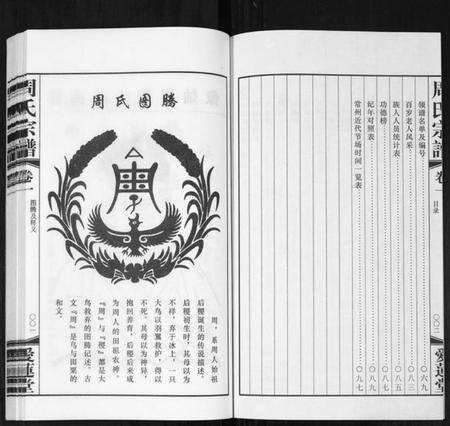 周氏宗譜
卷一
目录
〇〇二
愛蓮堂
领谱名单及编号 〇六九
百岁老人风采 〇七八
族人人员统计表 〇八五
功德榜 〇八八
纪年对照表 〇八九
常州近代节场时间一览表 〇九七
周氏图腾
周，系周人始祖
后稷诞生的传说描述。
后稷初生时，其母以为
不祥，弃于冰上，一只
大鸟以羽翼救护，得以
不死，其母以为神异，
抱回养育，后稷后来成
为周人的田祖农神。
『周』与『稷』都是大
鸟救弃的图腾记述。古
文『周』是鸟与田粟的
和文。
周氏宗譜
卷一
图腾及释义
〇〇一
愛蓮堂